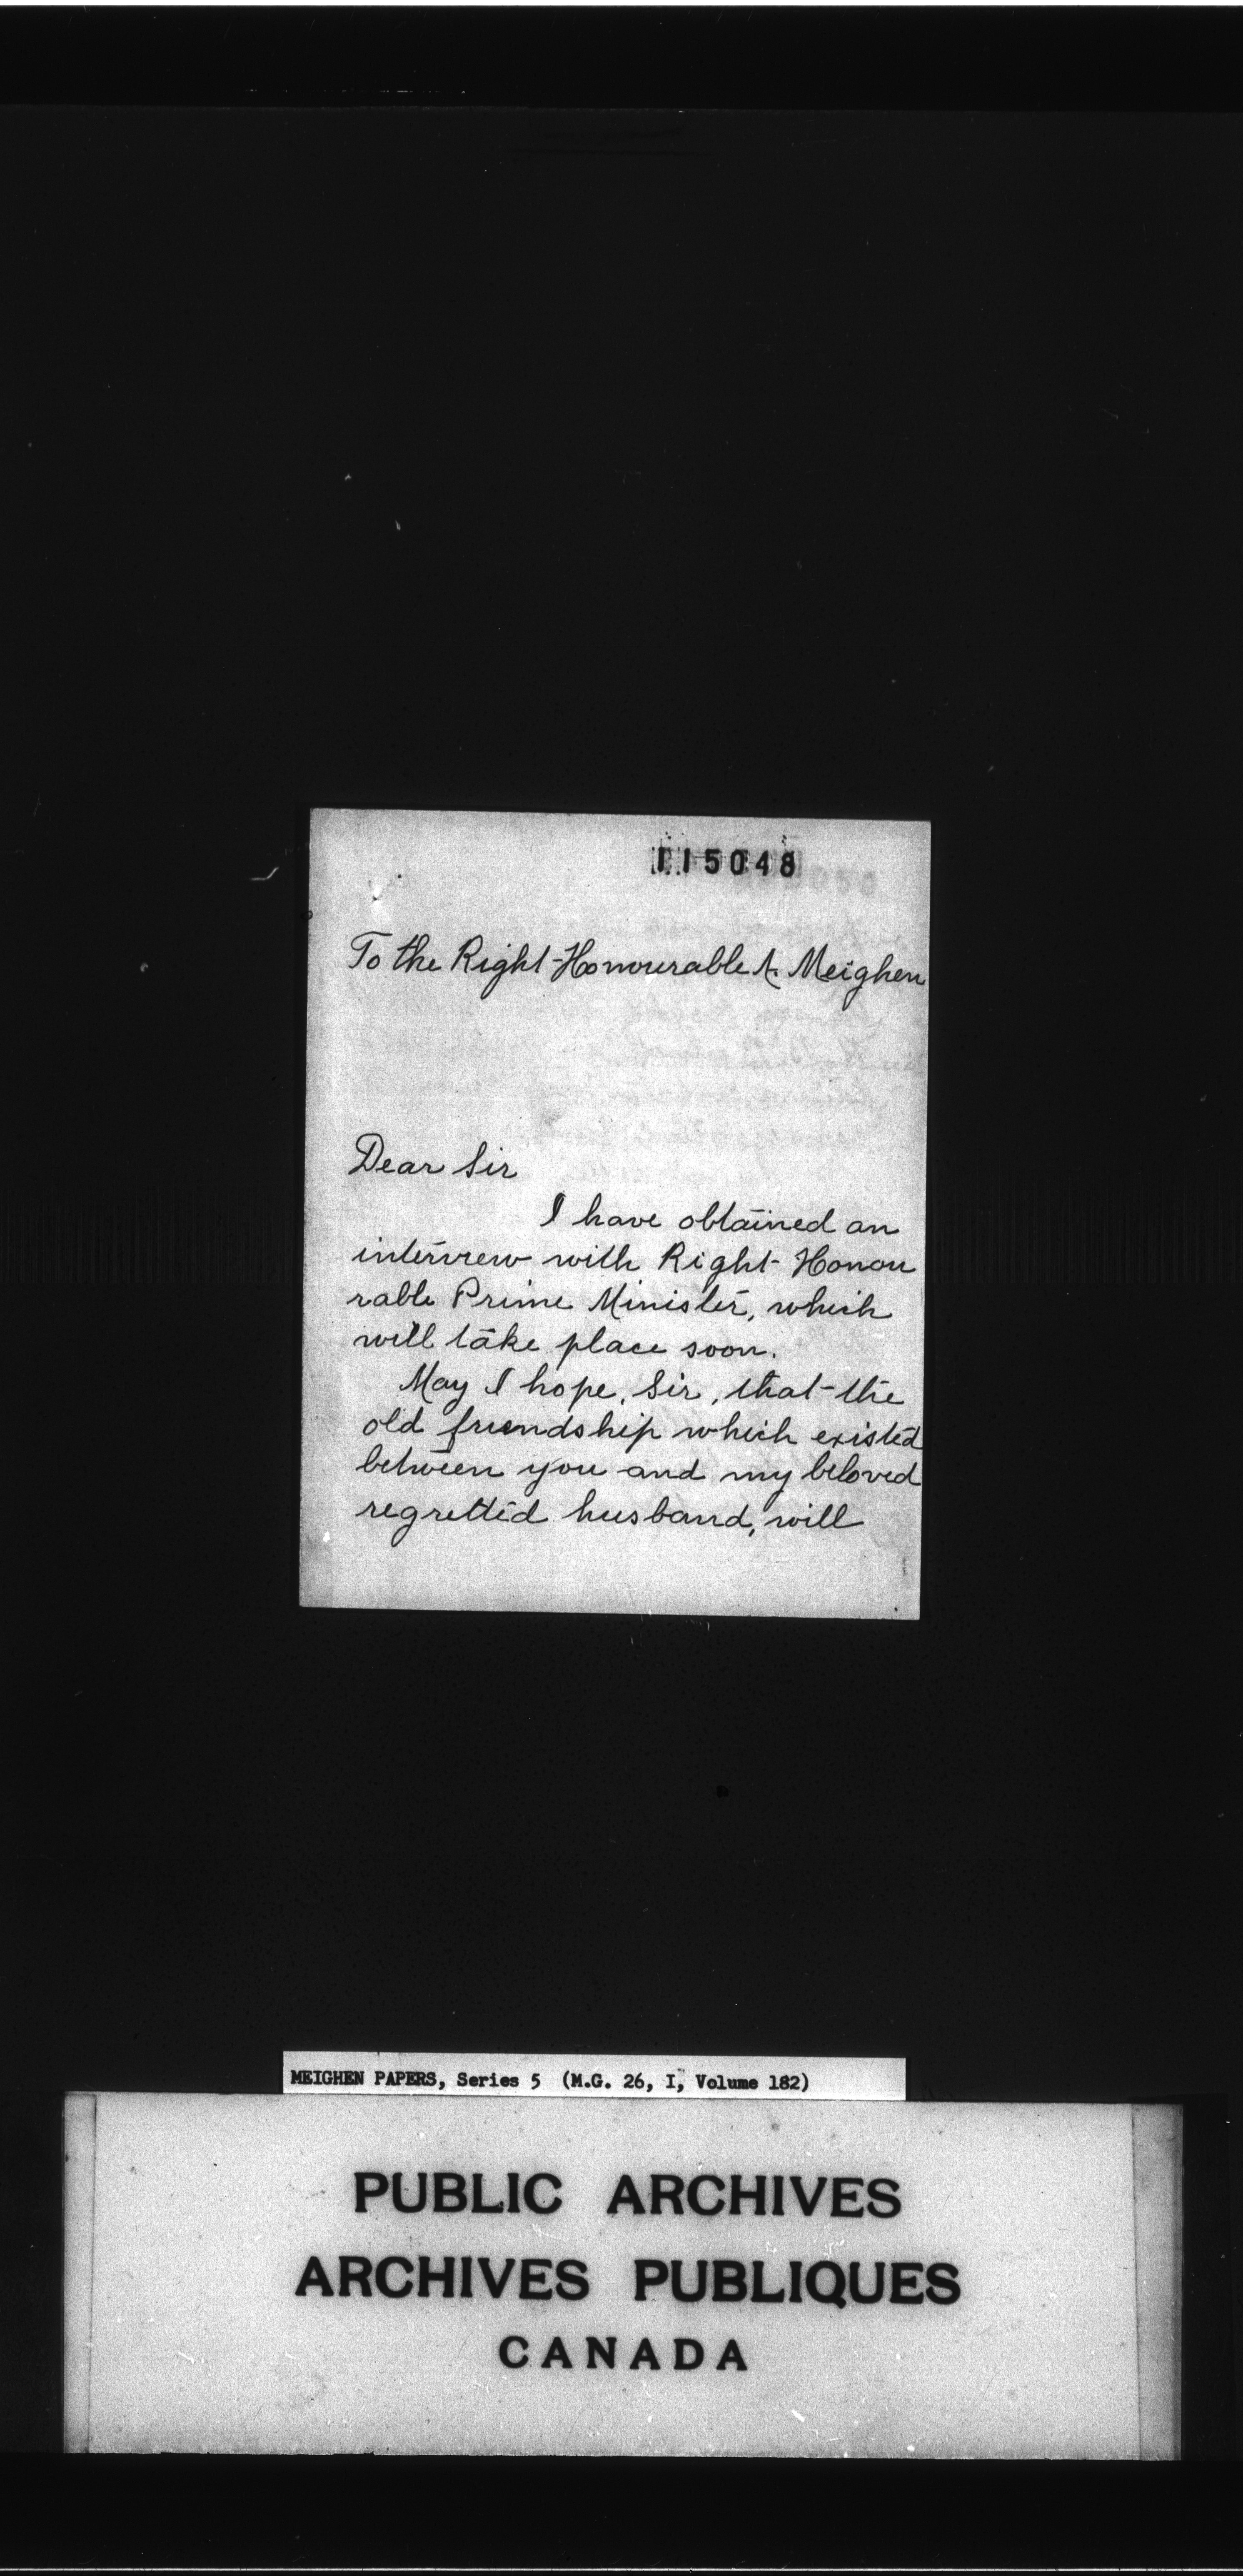 115048
To the Right-Honourable A. Meighen
Dear Sir
I have obtained an
interview with Right-Honou
rable Prime Minister, which
will take place soon.
May I hope, Sir, that the
old friendship which existed
between you and my beloved
regretted husband, will
MEIGHEN PAPERS, Series 5 (M.G. 26, I, Volume 182)
PUBLIC ARCHIVES
ARCHIVES PUBLIQUES
CANADA